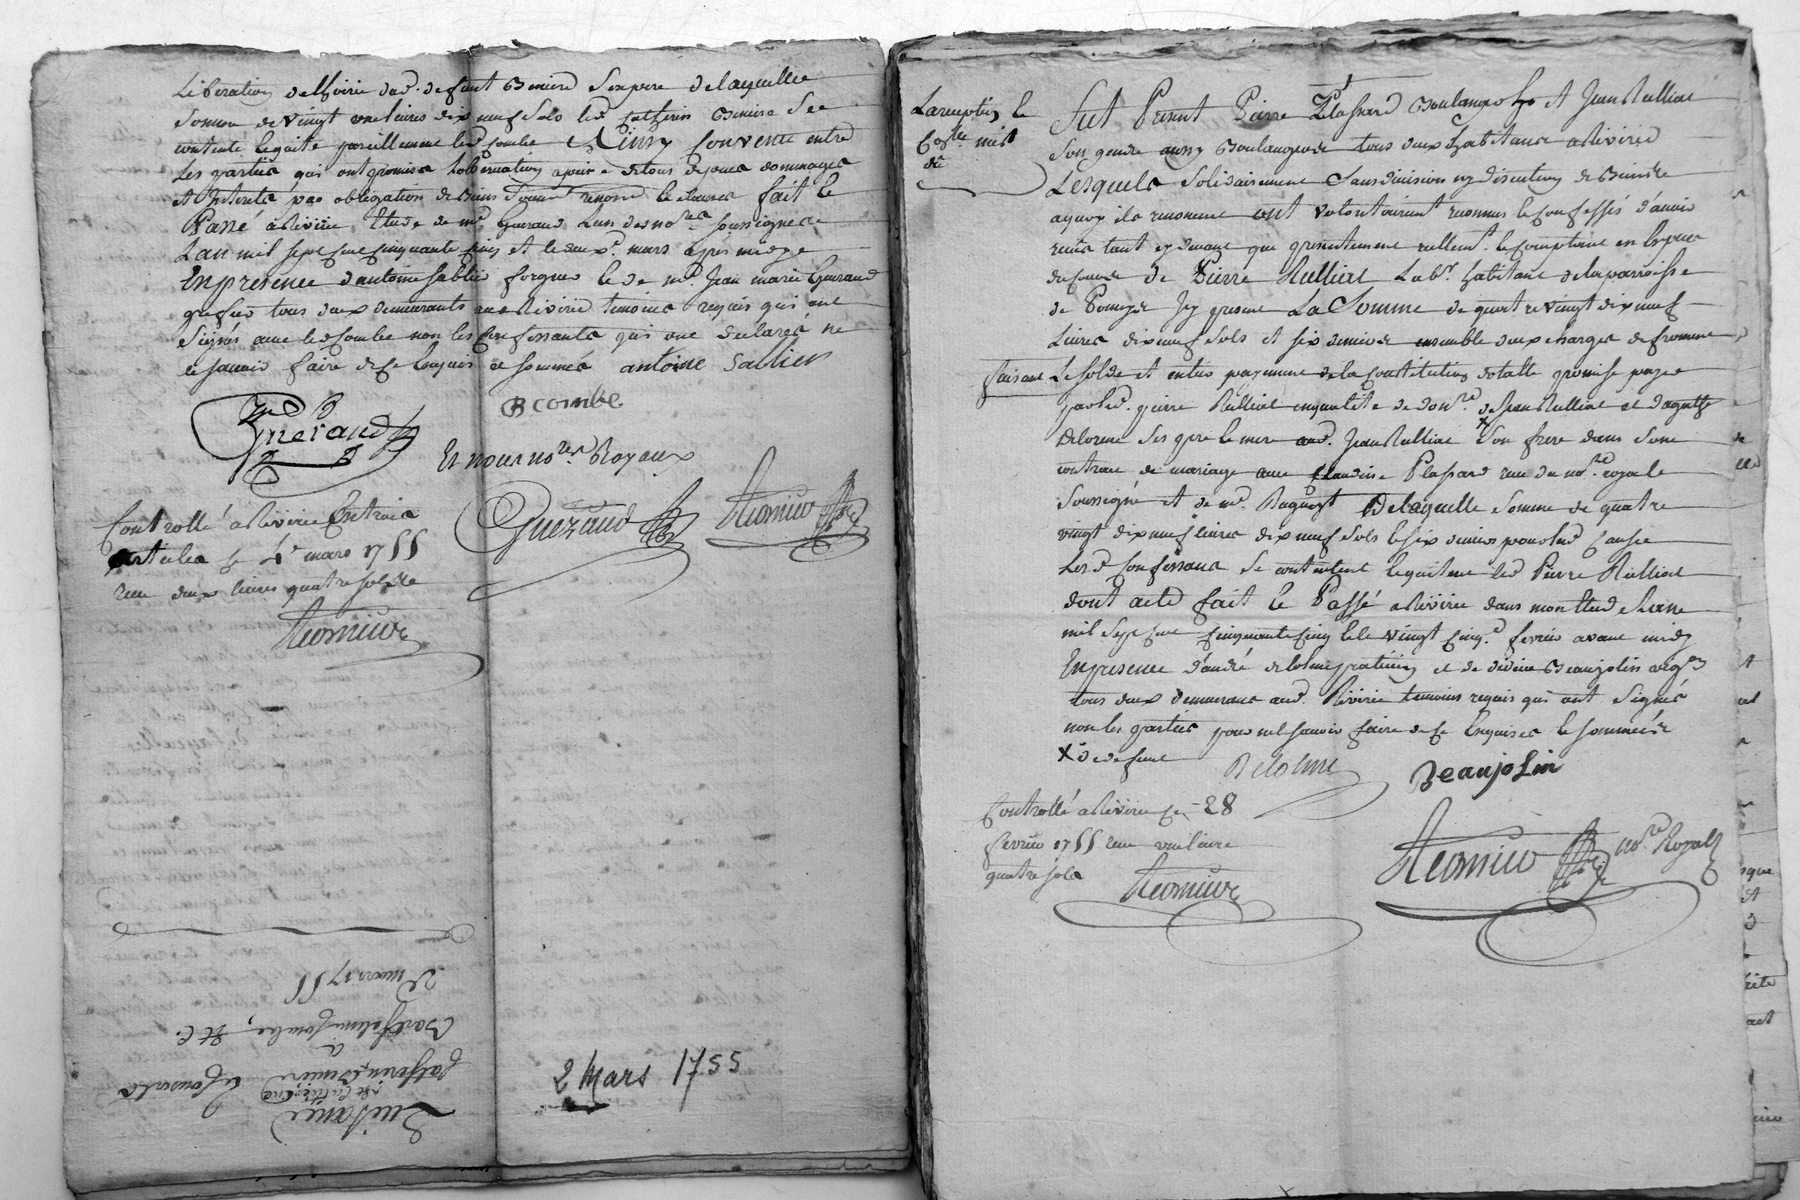 Liberation de hoirie dud. defunt Benier son pere de laquelle
somme de vingt une livres dix neuf sols led. Catherin Benier se
contente le quite pareillement led. Combe Ainsy Convenu entre
les parties qui ont promis l'observation a peine de tous depens dommages
et interets par obligation de biens soum. renon. & clauses fait &
Passé a Rivirie Etude de me. Gueraud l'un des nores. soussignes
L'an mil sept cent cinquante cinq et le deux. mars apres midy
En presence d'antoine Sablier forgeur & de me. Jean marie Gueraud
greffier tous deux demeurants aud. Rivirie temoins requis qui ont
signés avec led. Combe non les Confessants qui ont declarés ne
le savoir faire de ce Enquis & sommés antoine Sablier
B combe
Gueraud
Et nous nores. Royaux
Gueraud
Controllé a Rivirie En trois
articles ce 4e mars 1755
receu deux livres quatre sols
2 mars 1755
Barthelemy Combe, &c.
a
Catherin Benier
Quittance
2 Mars 1755
Fut Present Pierre Plassard Boulanger & Jean Rulliat
Son gendre aussy Boulanger tous deux habitants a Rivirie
Lesquels solidairement sans division ny discution de biens
a quoy ils renoncent ont volontairement reconnus & confessés d'avoir
receu tant cy devant que presentement reellement & comptant en Especes
de cours de Pierre Rulliat Labr. habitant de la parroisse
de Pomeys Icy present La Somme de quatre vingt dix neuf
Livres dix neuf sols et six deniers ensemble deux charges de froment
faisant Le solde et entier payement de la constitution dotalle promise payer
par led. pierre Rulliat en qualité de donre. de Jean Rulliat et d'agathe
Delorme ses pere & mere aud. Jean Rulliat son frere dans son
contrat de mariage avec Claudine Plassard receu du nore. royal
soussigné et de me. Raguet De laquelle somme de quatre
vingt dix neuf livres dix neuf sols & six deniers pour lad. cause
Lesd. Confessants se contentent & quittent led. Pierre Rulliat
dont acte fait & Passé a Rivirie dans mon Etude L'an
mil Sept cent cinquante cinq & le vingt cinq. fevrier avant midy
En presence d'andré delorme praticien et de Beaujolin
tous deux demeurants aud. Rivirie temoins requis qui ont signés
non les parties pour ne le savoir faire de ce Enquises & sommées
X de deffunt
Delorme Beaujolin
Controllé a Rivirie ce 28
fevrier 1755 receu une livre
quatre sols
nore. Royal